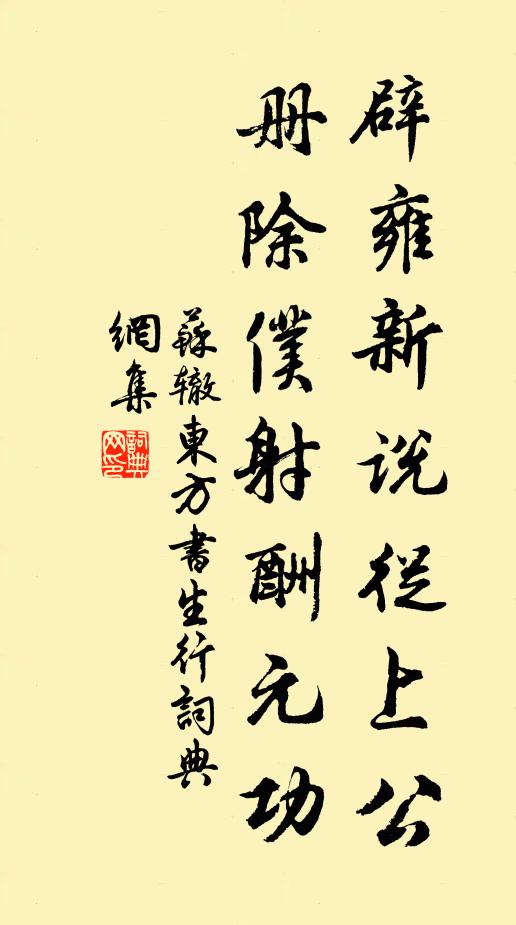 辟雍新说從上公
册除僕射酬元功
蘇辙東方書生行詞典
網集
詞典網印